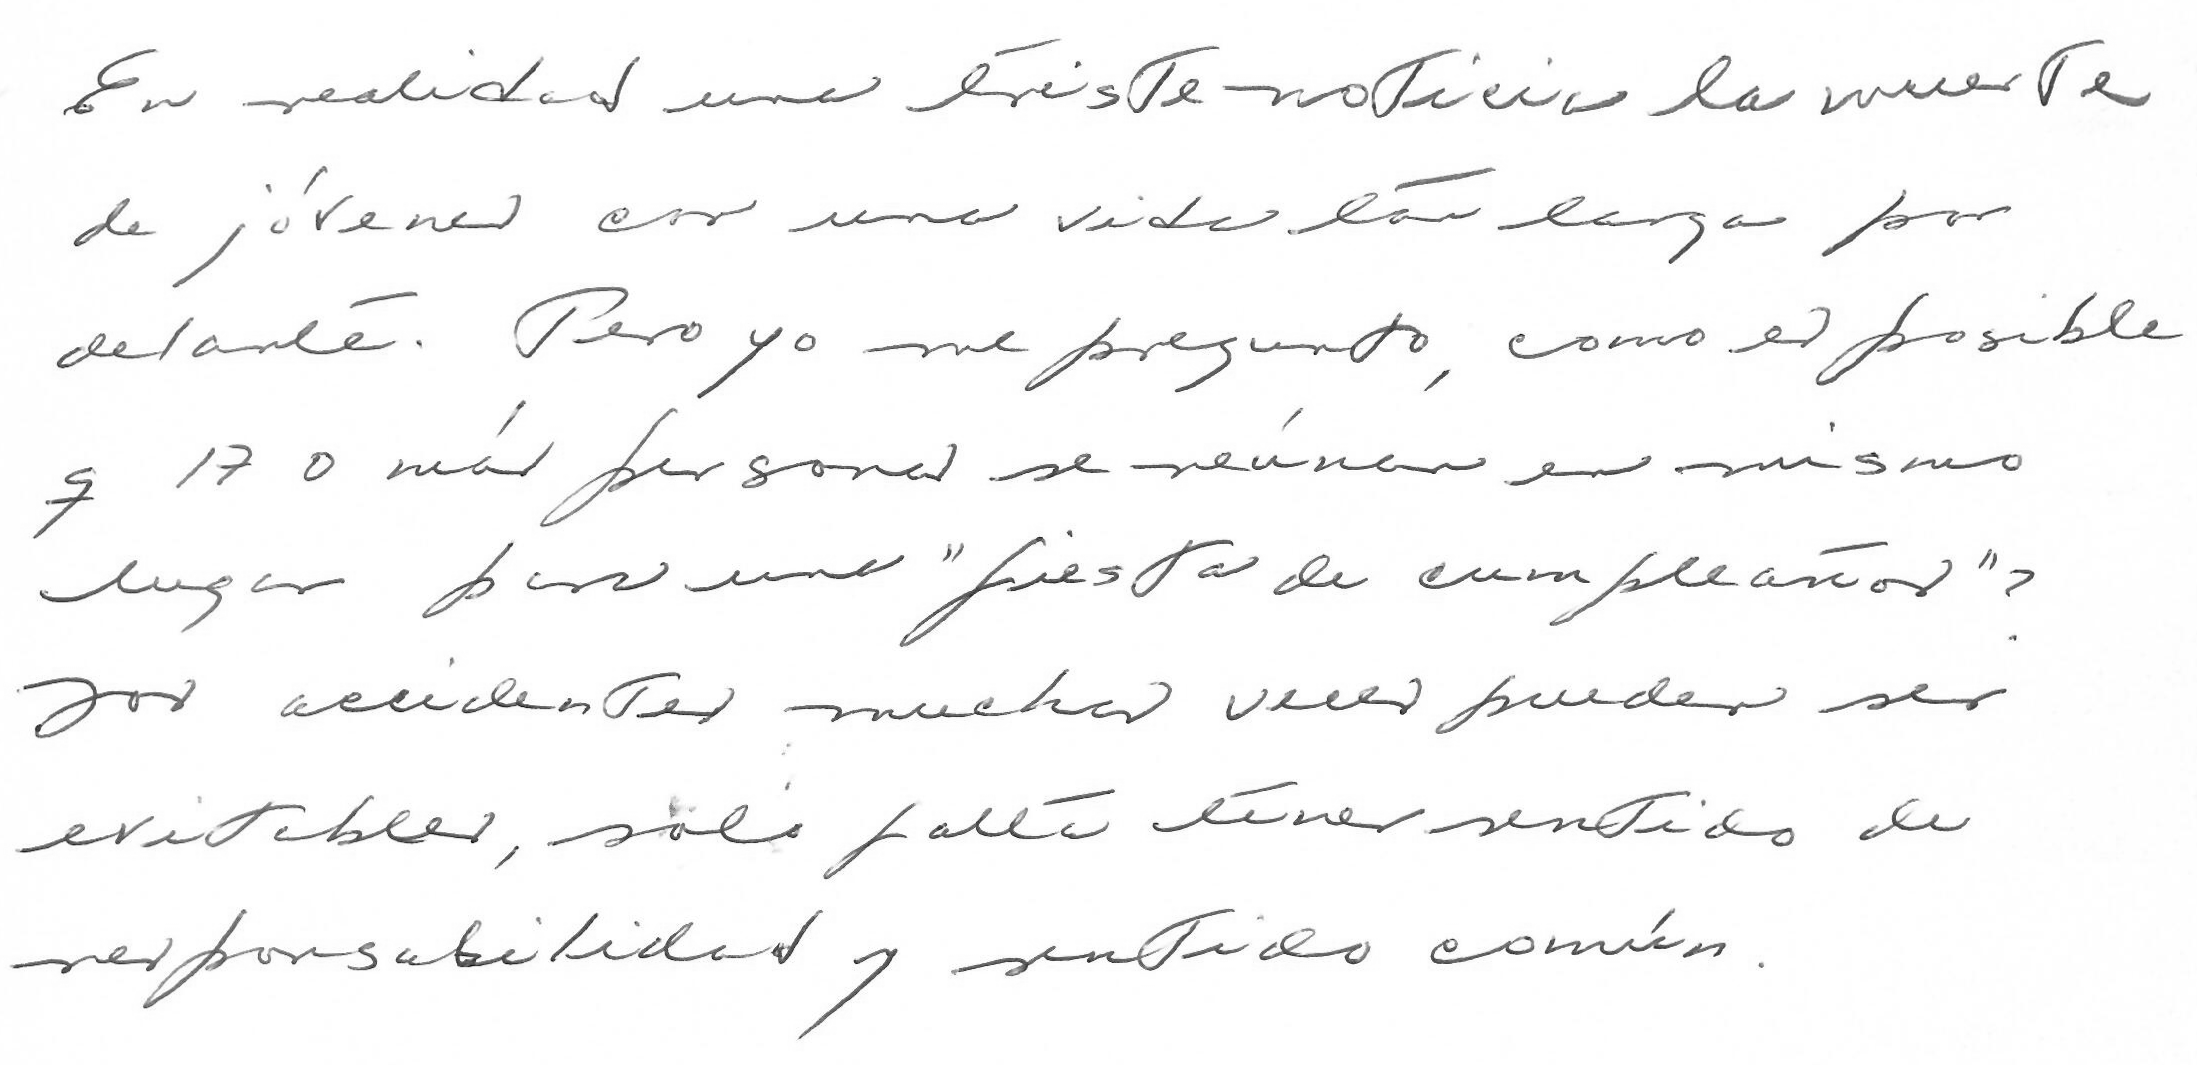 En realidad una triste noticia la muerte
de jóvenes con una vida tan larga por
delante. Pero yo me pregunto, como es posible
q 17 o más personas se reúnan en mismo
lugar para una "fiesta de cumpleaños"?
Los accidentes muchas veces pueden ser
evitables, solo falta tener sentido de
responsabilidad y sentido común.